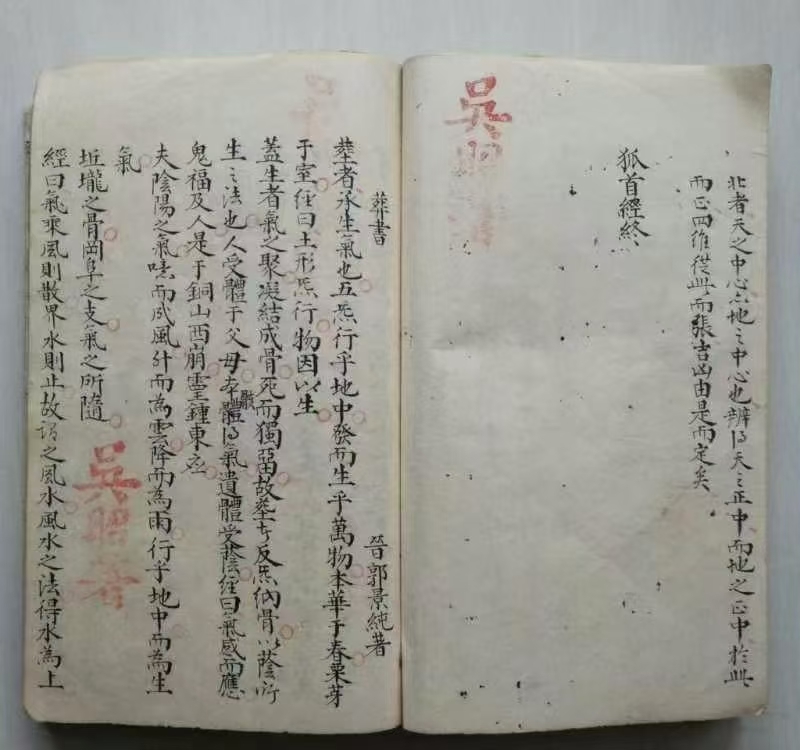 北者天之中心六地之中心也辨得天之正中而地之正中於此
而正四維從此而張吉凶由是而定矣
狐首經終
吳照
葬書
晉郭景純著
葬者承生氣也五炁行乎地中發而生乎萬物木華于春栗芽
于室 經曰土形炁行物因以生
蓋生者氣之聚凝結成骨死而獨畱故葬者反炁納骨以蔭所
生之法也人受體于父母本骸體得氣遺體受蔭經曰氣感而應
鬼福及人是于銅山西崩靈鍾東應
夫陰陽之氣噫而成風升而為雲降而為雨行乎地中而為生
氣
坵壠之骨岡阜之支氣之所隨
經曰氣乘風則散界水則止故謂之風水風水之法得水為上
吳照書